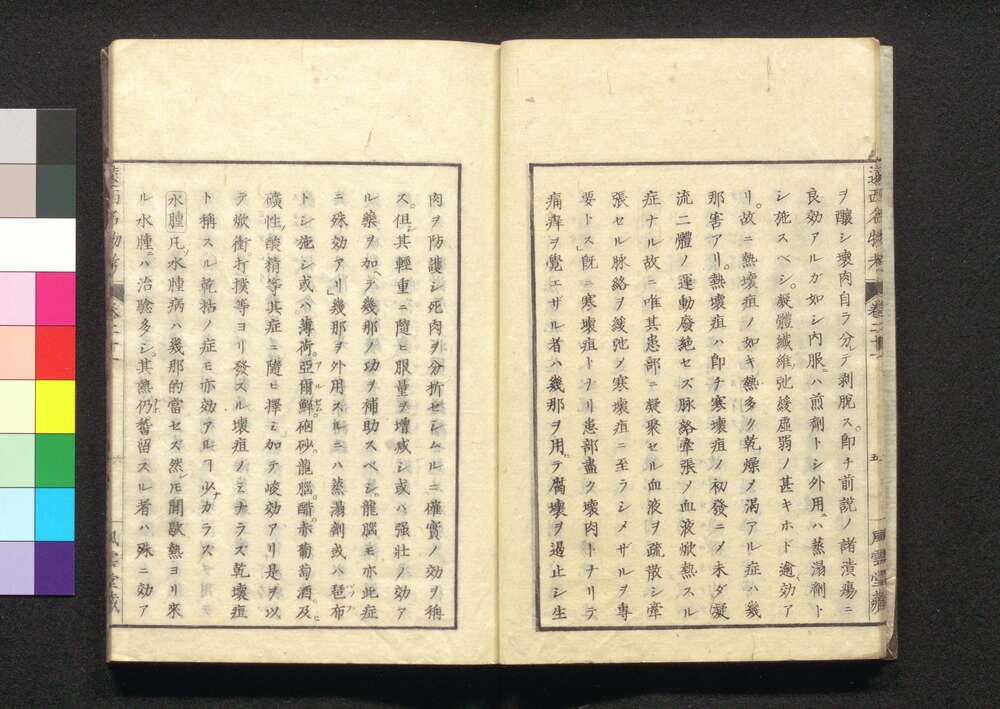 ヲ釀シ壞肉自ラ分テ剥脫ス。即チ前説ノ諸潰瘍ニ
良効アルガ如シ内服ニハ煎劑トシ外用ニハ蒸溻劑ト
シ施スベシ。凝體纖維弛緩虛弱ノ甚キホド逾効ア
リ。故ニ熱壞疽ノ如キ熱多ク乾燥メ渇アル症ハ幾
那害アリ。熱壞疽ハ即チ寒壞疽ノ初發ニメ未ダ凝
流二體ノ運動廢絶セズ脉絡牽張メ血液焮熱スル
症ナル故ニ唯其患部ニ凝聚セル血液ヲ疏散シ牽
張セル脉絡ヲ緩弛メ寒壞疽ニ至ラシメザルヲ專
要トス既ニ寒壞疽トナリ患部盡ク壞肉トナリテ
痛痒ヲ覺エザル者ハ幾那ヲ用テ腐壞ヲ遏止シ生
遠西名物考 卷二十一
五
風雲堂藏
肉ヲ防護シ死肉ヲ分折セシムルニ確實ノ効ヲ稱
ス。但其輕重ニ隨ヒ服量ヲ增減シ或ハ強壯ノ効ア
ル藥ヲ加ヘテ幾那ノ功ヲ補助スベシ。龍腦モ亦此症
ニ殊効アリ幾那ヲ外用スルニハ蒸溻劑或ハ琶布
トシ施シ或ハ薄荷。亞爾鮮。硇砂。龍腦。醋。赤葡萄酒。及ヒ
礦性ノ酸精等其症ニ隨ヒ擇ミ加テ峻効アリ是ヲ以
テ焮衝打撲等ヨリ發スル壞疽ノミナラス乾壞疽
ト稱スル乾枯ノ症モ亦効アルヿ少ナカラス
水腫 凡ソ水腫病ハ幾那的當セズ然ヒモ間歇熱ヨリ來
ル水腫ニハ治驗多シ。其熱仍ホ暫留スル者ハ殊ニ効ア
遠西名物考 卷二十一
風雲堂藏